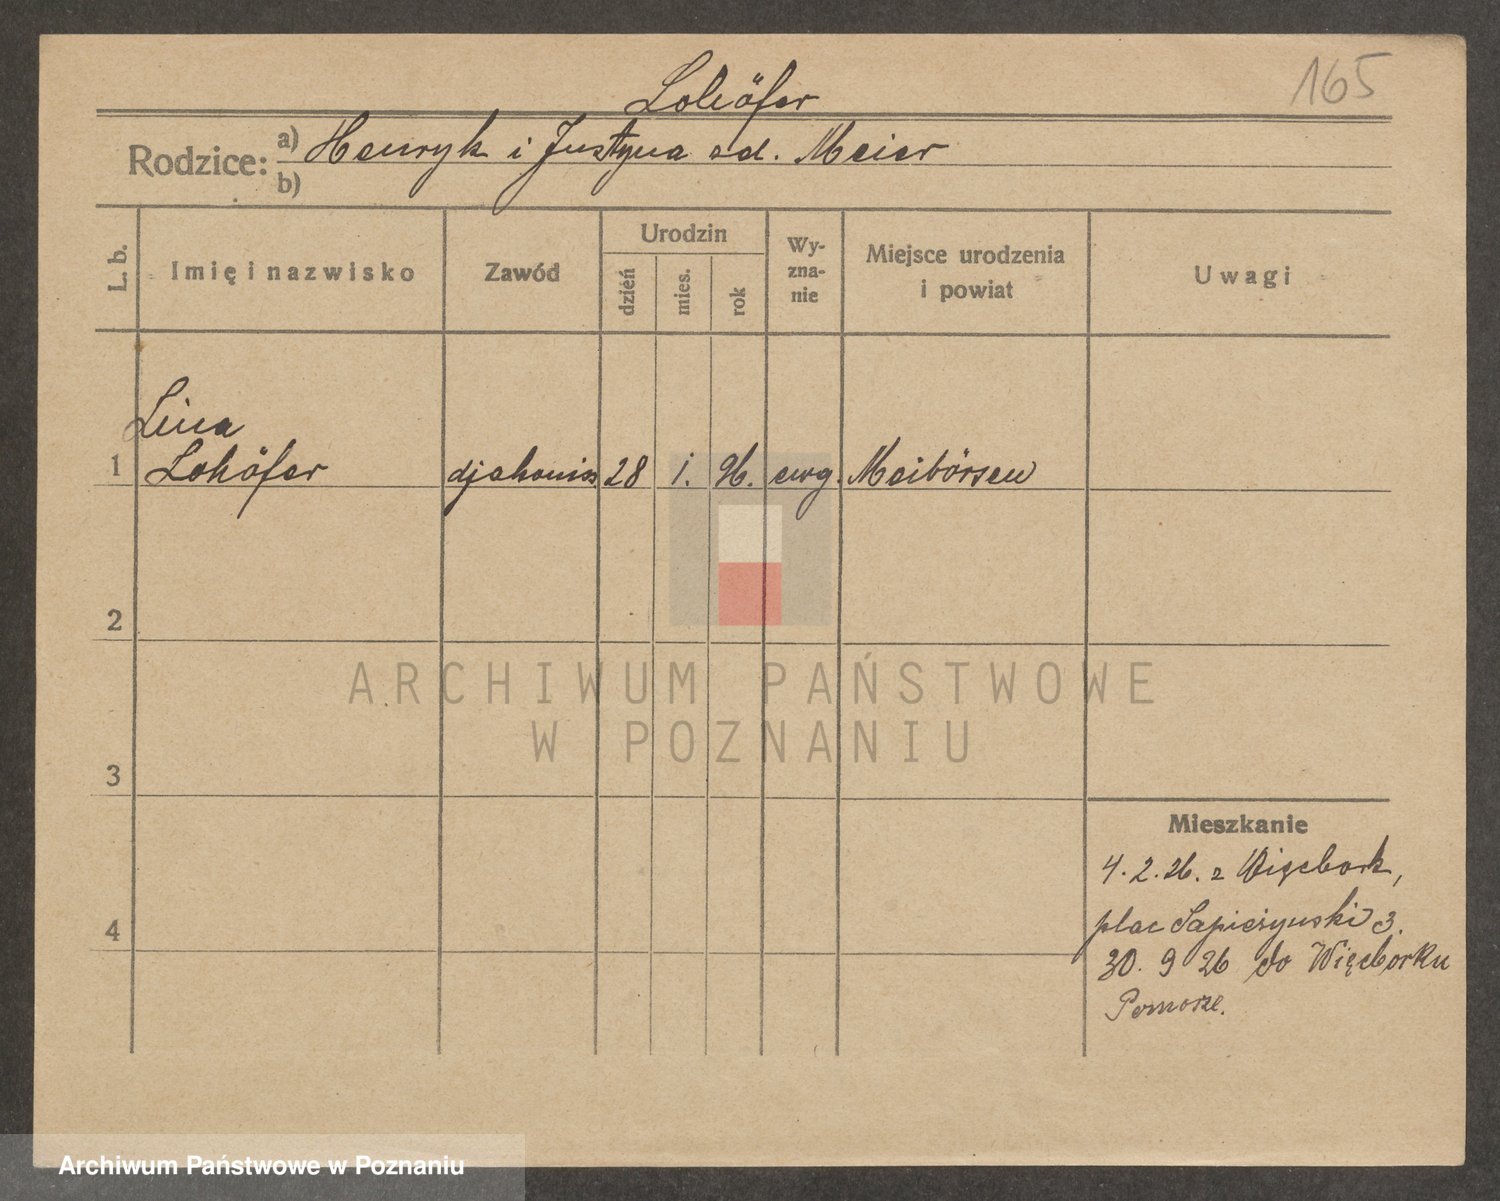 165
Lohöfer
Rodzice: a) Henryk i Justyna zd. Meier
b)
L. b. Imię i nazwisko Zawód Urodzin dzień mies. rok Wyznanie Miejsce urodzenia i powiat Uwagi
Lina
1 Lohöfer djakonis. 28 1. 96. ewg. Meibörsen
2
3
4
Mieszkanie
4.2.26. z Więcbork,
plac Sapieżynski 3.
30. 9 26 do Więcborku
Pomorze.
ARCHIWUM PAŃSTWOWE
W POZNANIU
Archiwum Państwowe w Poznaniu